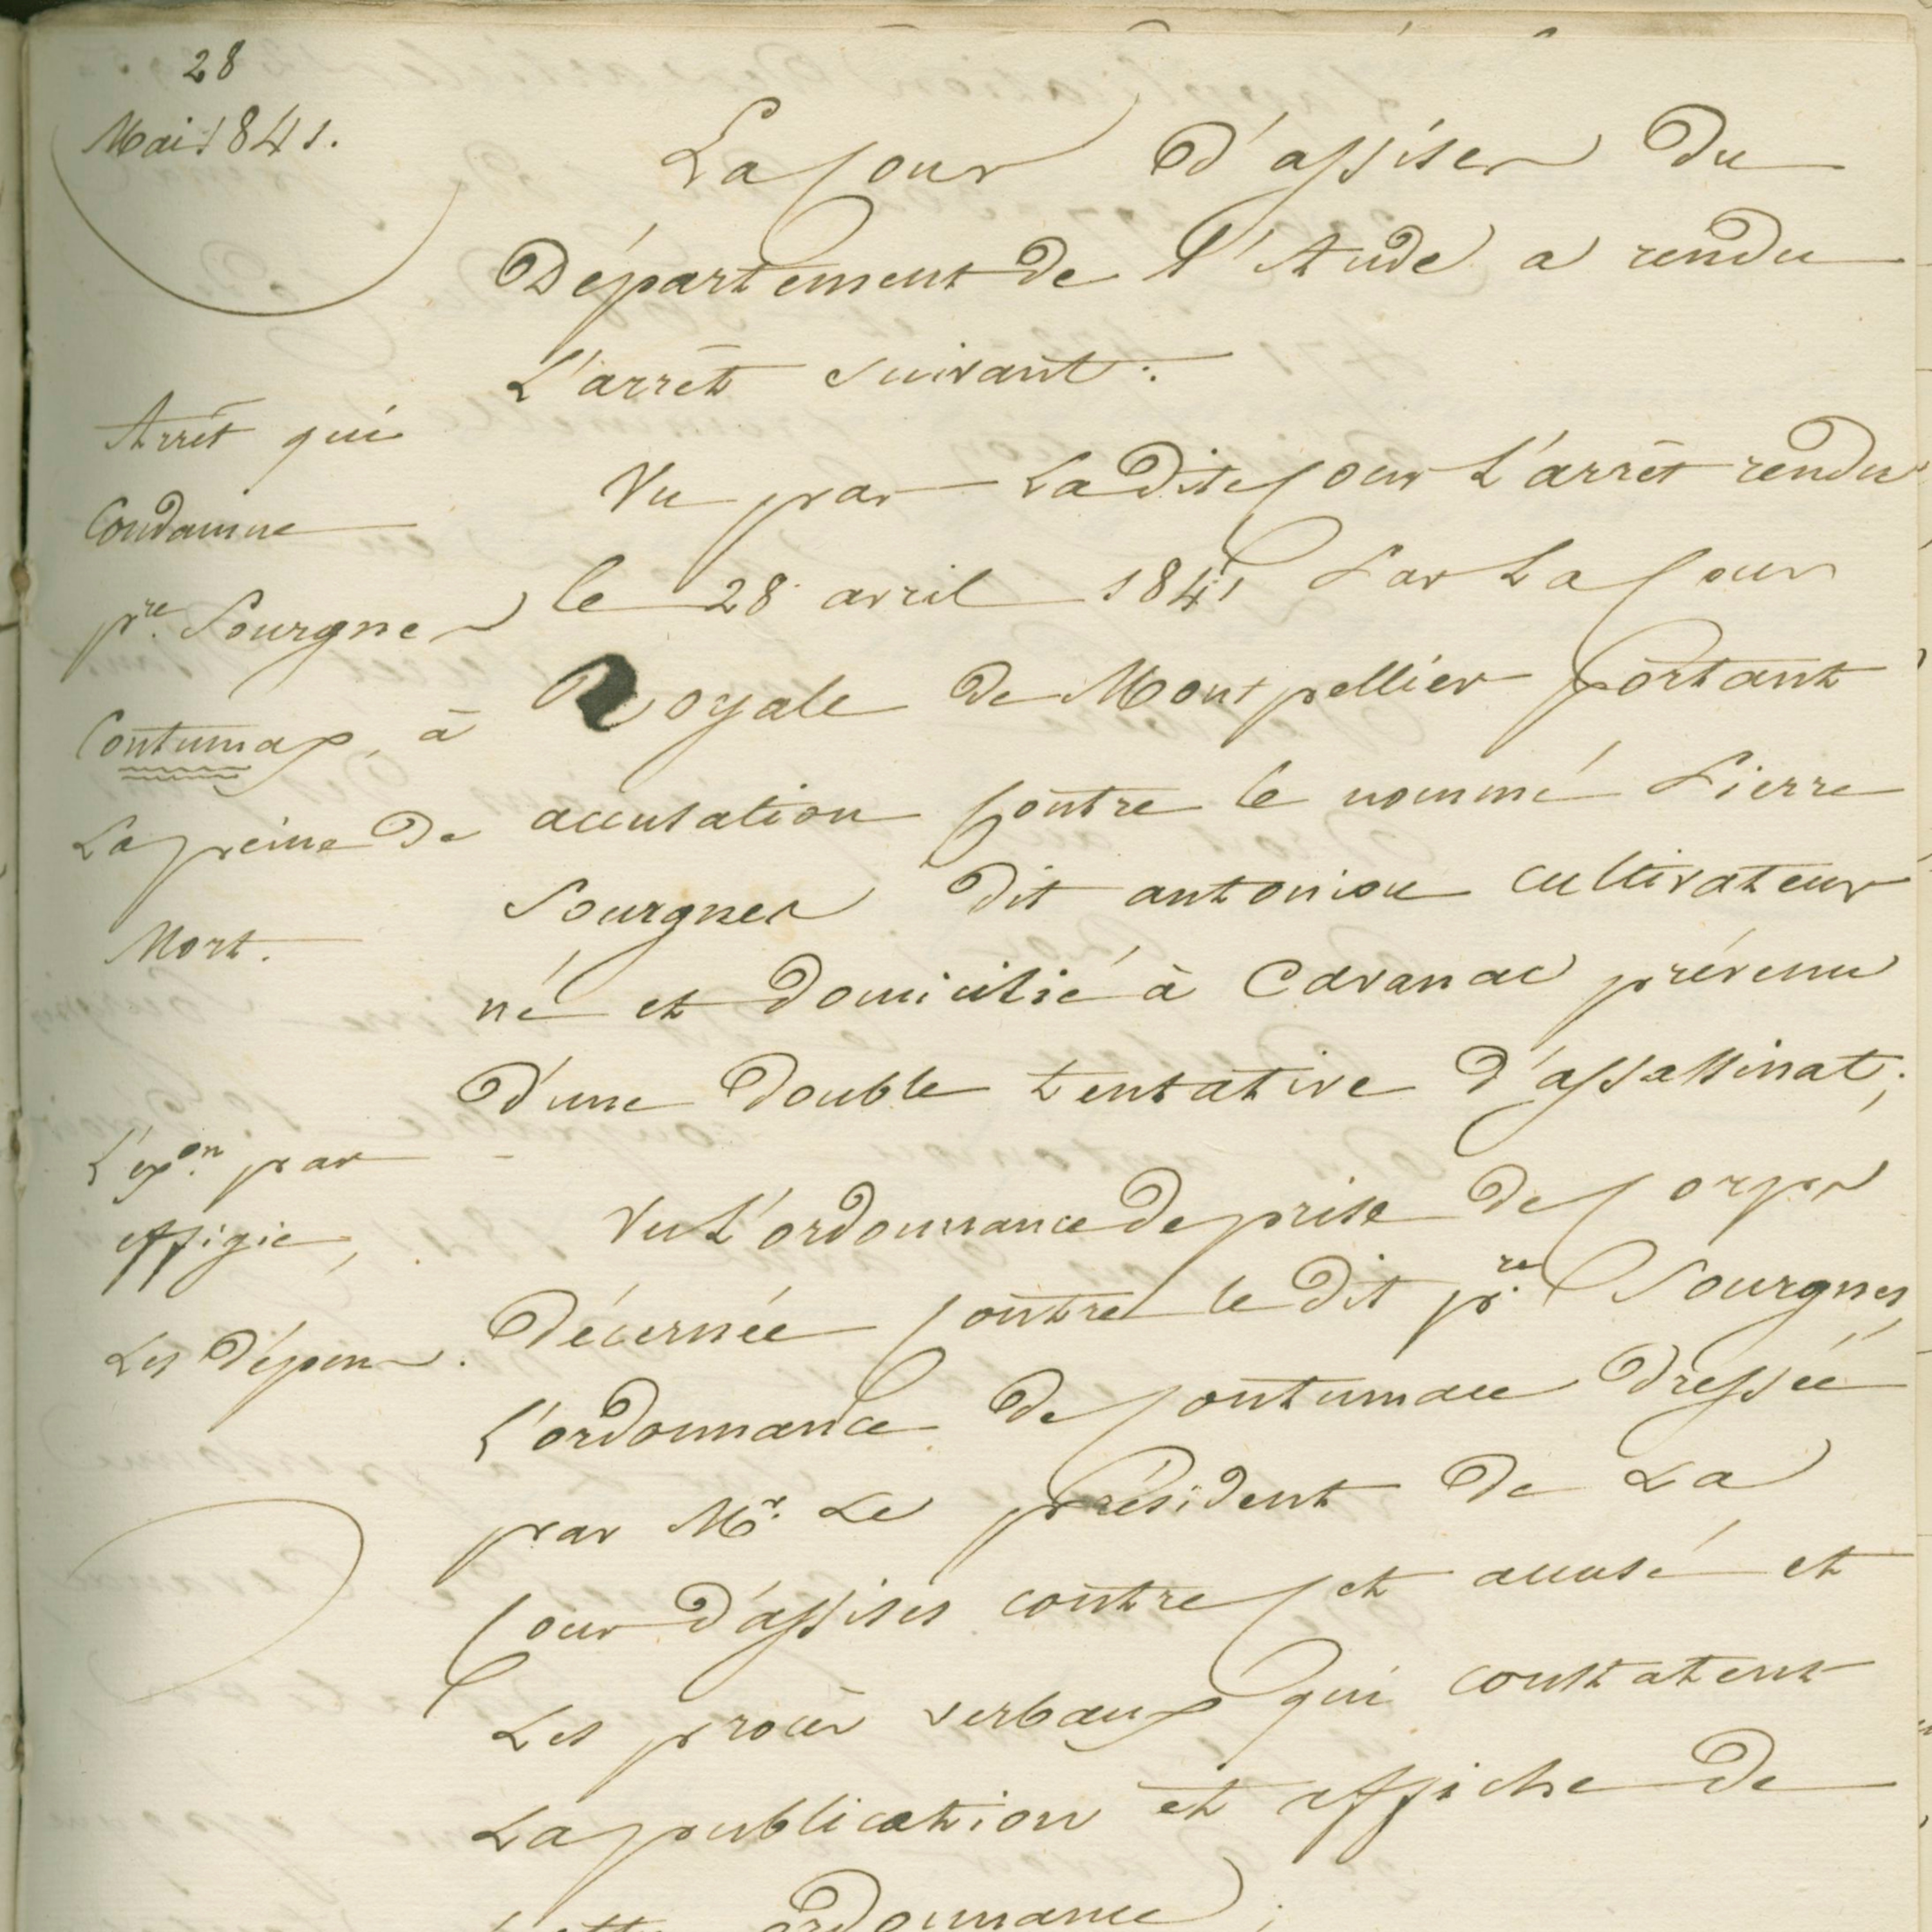 28
Mai 1841.
Arrêt qui
Condamne
pre Sourgne
Contumax, à
La peine de
Mort.
L'exon par
effigie,
Les dépens.
La Cour d'assises du
Département de l'Aude a rendu
L'arrêt suivant:
Vu par La dite Cour L'arrêt rendu
le 28 avril 1841 Par La Cour
Royale de Montpellier portant
accusation Contre le nommé Pierre
Sourgnes dit antoniou cultivateur
né et domicilié à Cavanac prévenu
d'une double tentative d'assassinat;
Vu L'ordonnance de prise de Corps
décernée Contre le dit pre Sourgnes,
L'ordonnance de Contumace dressée
par Mr Le président de La
Cour d'assises contre Cet accusé et
Les procès verbaux qui constatent
La publication et affiche de
Cette ordonnance;